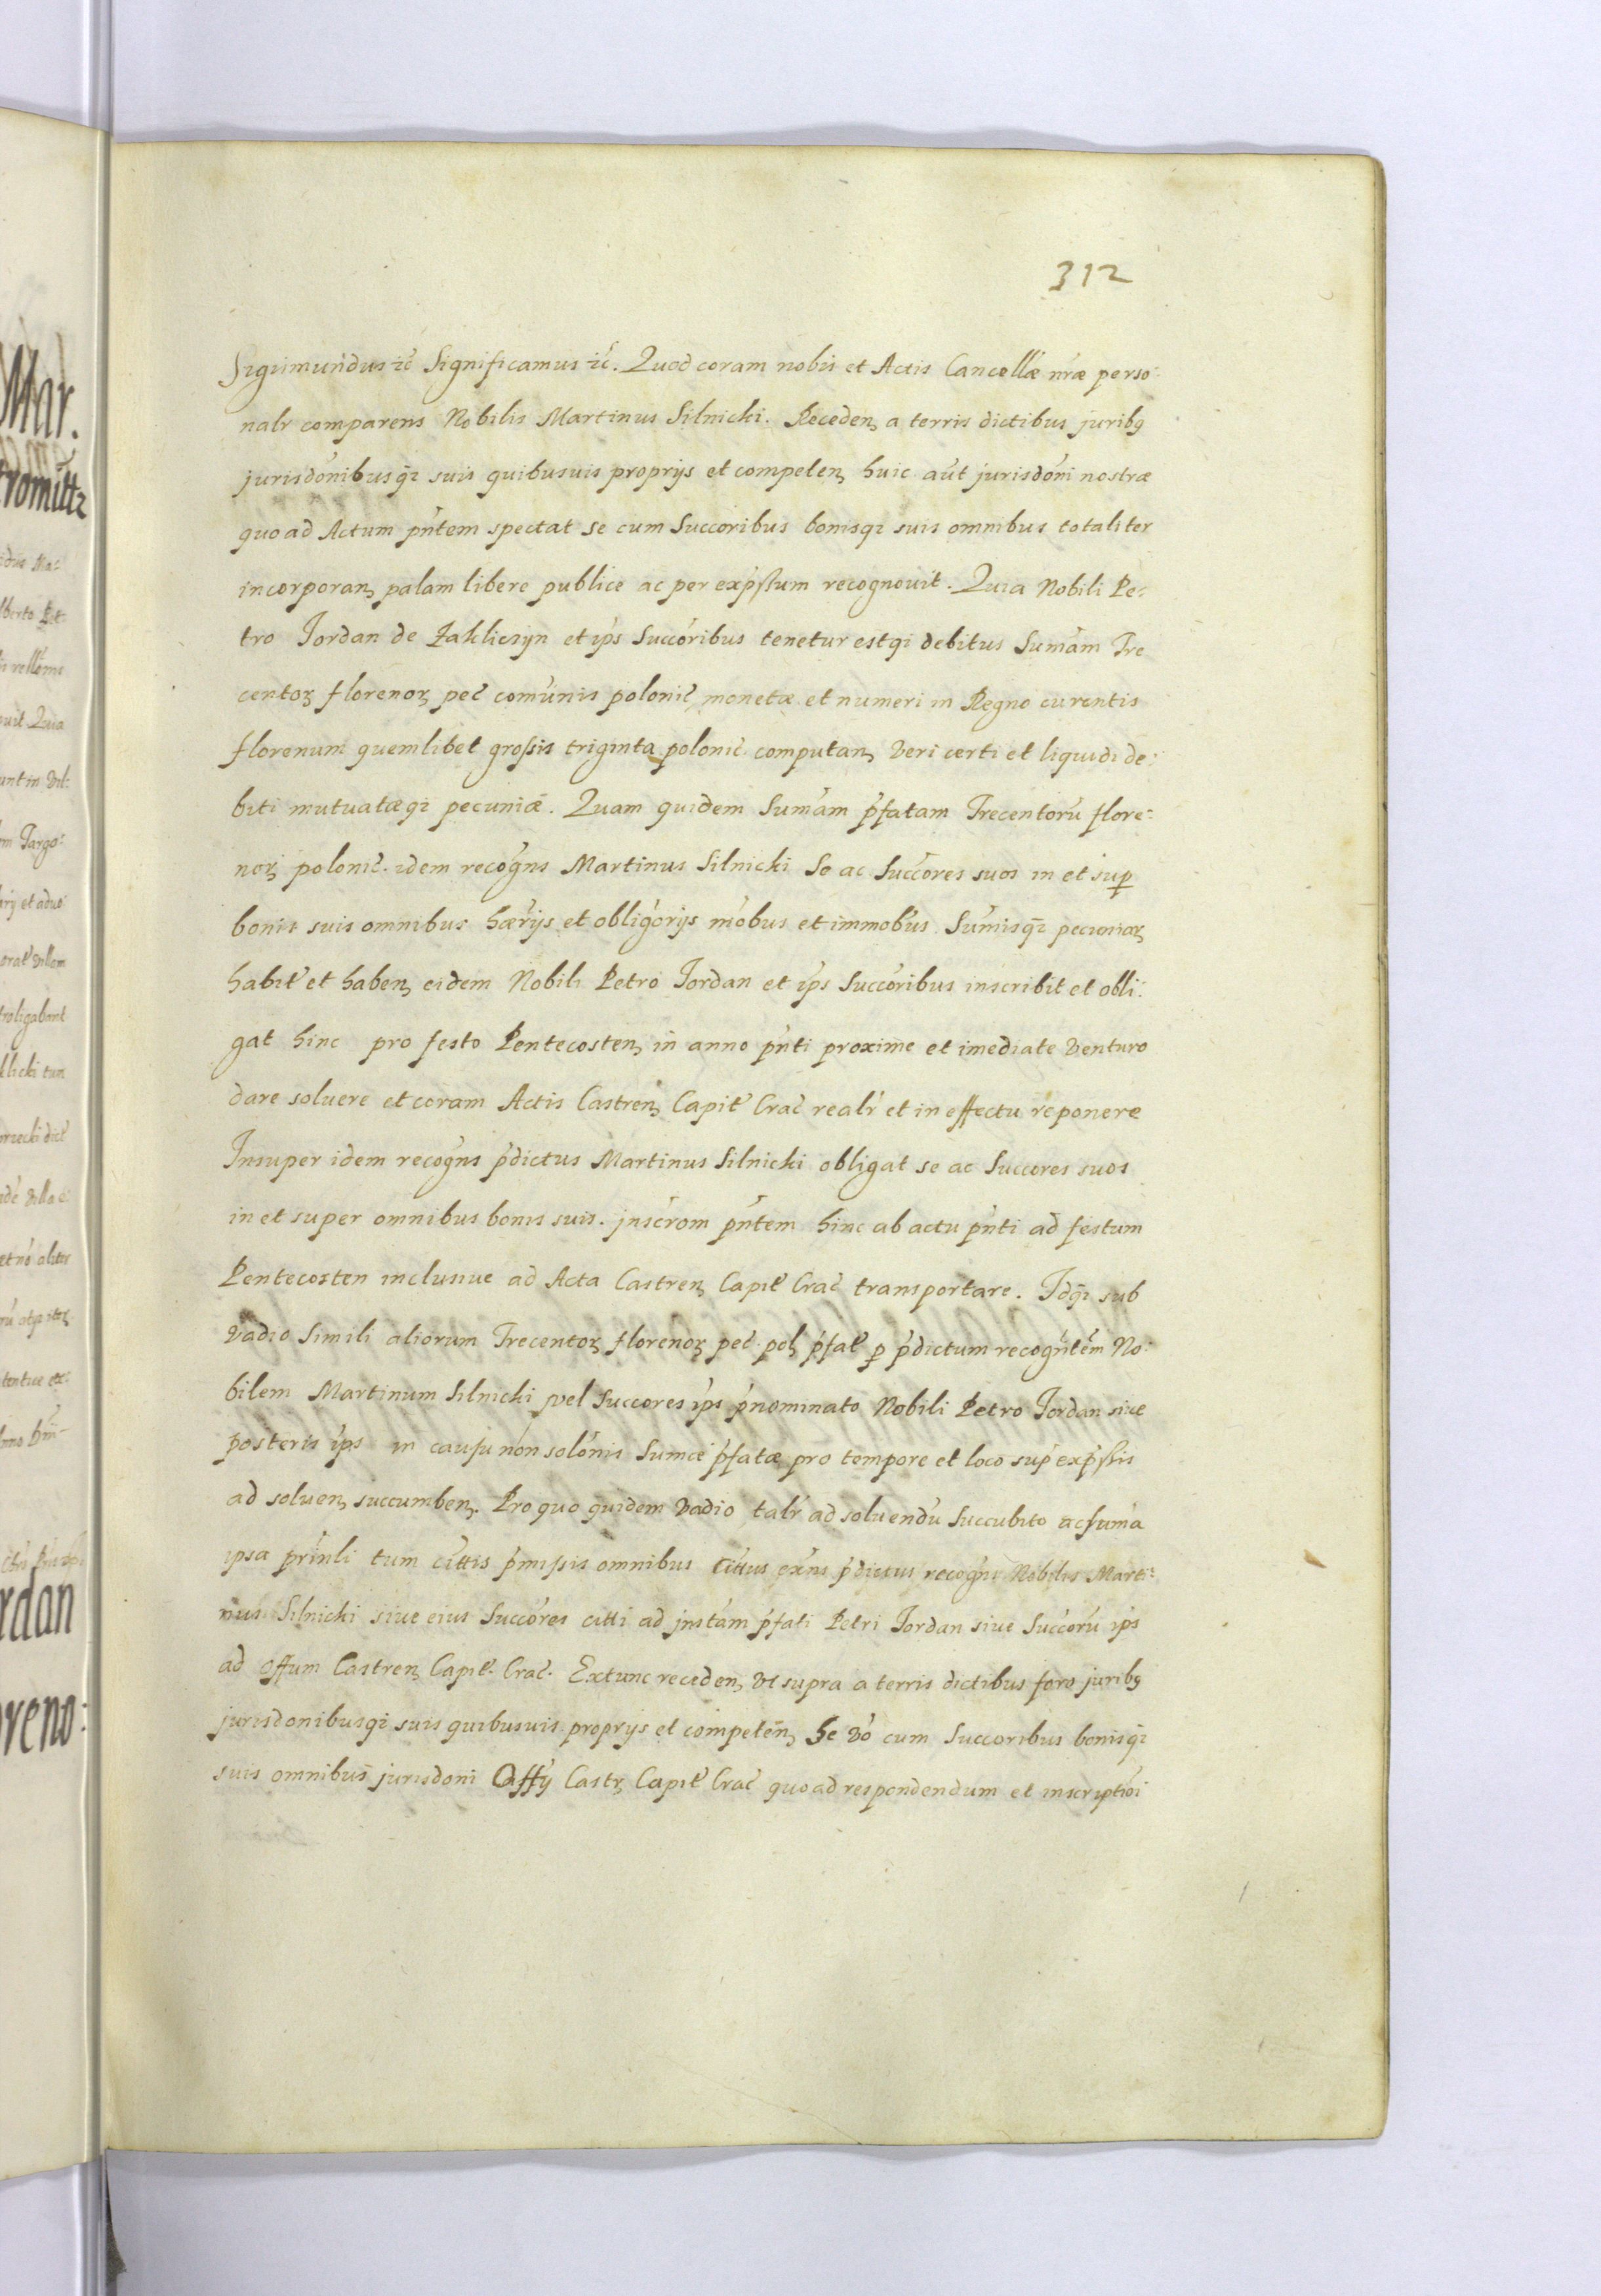 312
Sigismundus etc̃ Significamus etc̃. Quod coram nobis et Actis Cancellæ nr̃æ perso:
nalr comparens Nobilis Martinus Silnicki. Receden, a terris dictibus juribꝫ
jurisdónibusqꝫ suis quibusuis proprijs et competen, huic aūt jurisdóni nostræ
quo ad Actum pñtem spectat se cum Succoribus bonisqꝫ suis omnibus totaliter
incorporan, palam libere publice ac per exṕssum recognouit. Quia Nobili Pe:
tro Jordan de Zakliczyn et ip̃s Succoribus tenetur estqꝫ debitus Sum̃am Tre
centoꝝ florenoꝝ pec̃ com̃unis polonic̃ monetæ et numeri in Regno curentis
florenum quemlibet grossis triginta polonic̃ computan, veri certi et liquidi de:
biti mutuatæqꝫ pecuniæ. Quam quidem Sum̃am ṕfatam Trecentorū flore:
noꝝ polonic̃. idem recogns Martinus Silnicki Se ac Succores suos in et suꝑ
bonis suis omnibus hærijs et obligorijs mobus et immobus Sum̃isqꝫ pecuniaꝝ
habit̃ et haben, eidem Nobili Petro Jordan et ip̃s Succoribus inscribit et obli:
gat hinc pro festo Pentecosten, in anno pñti proxime et im̃ediate venturo
dare soluere et coram Actis Castren, Capit̃ Crac̃ realr et in effectu reponere
Insuper idem recogns ṕdictus Martinus Silnicki obligat se ac Succores suos
in et super omnibus bonis suis. jnscrom pñtem hinc ab actu pñti ad festum
Pentecosten inclusiue ad Acta Castren, Capit̃ Crac̃ transportare. Idqꝫ sub
vadio simili aliorum Trecentoꝝ florenoꝝ pec̃ pol, ṕfat̃ ꝑ ṕdictum recogñtem No:
bilem Martinum Silnicki vel Succores ip̃s ṕnominato Nobili Petro Jordan siue
posteris ip̃s in causu non solónis Sum̃æ ṕfatæ pro tempore et loco suṕ exṕssis
ad soluen, succumben,. Pro quo quidem vadio talr ad soluendū Succubito ac suma
ipsa prinli tum cittis ṕmissis omnibus Cittus exñs ṕdictus recogns Nobilis Marti:
nus Silnicki siue eius Succores citti ad jnstam ṕfati Petri Jordan siue Succorū ip̃s
ad offum Castren, Capit̃. Crac̃. Extunc receden, vt supra a terris dictibus foro juribꝫ
jurisdonibusqꝫ suis quibusuis proprijs et competen, Se vo cum Succoribus bonisqꝫ
suis omnibus jurisdoni Offij Castr, Capit̃ Crac̃ quo ad respondendum et inscriptioi